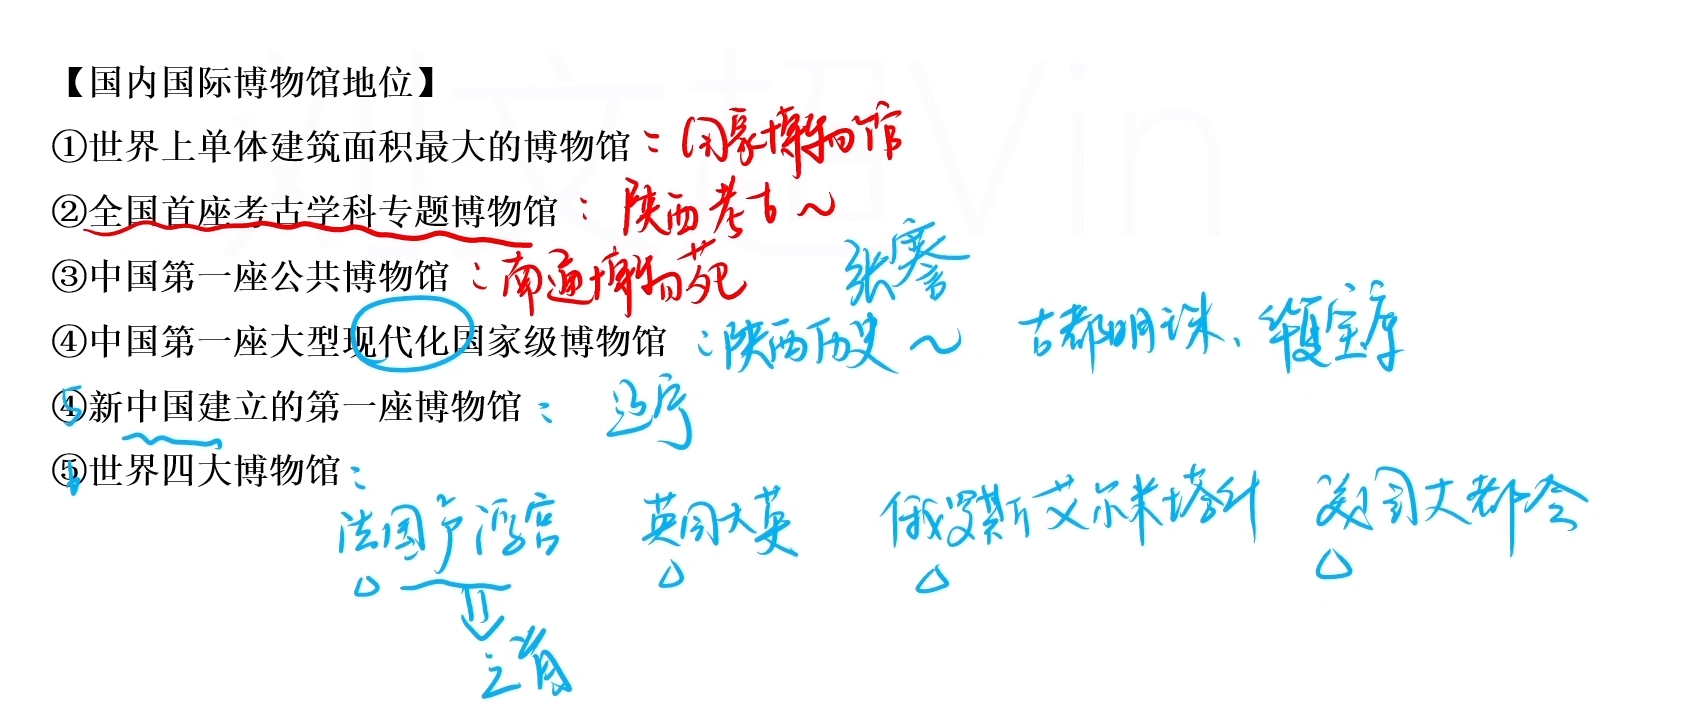 【国内国际博物馆地位】
①世界上单体建筑面积最大的博物馆：国家博物馆
②全国首座考古学科专题博物馆：陕西考古~
③中国第一座公共博物馆：南通博物苑 张謇
④中国第一座大型现代化国家级博物馆：陕西历史~ 古都明珠、华夏宝库
④5新中国建立的第一座博物馆：辽宁
⑤6世界四大博物馆：
法国卢浮宫 英国大英 俄罗斯艾尔米塔什 美国大都会
之首